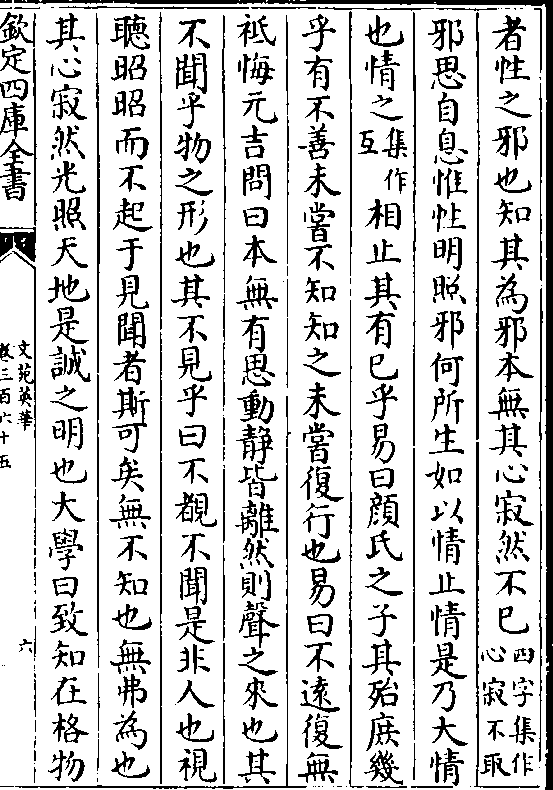 者性之邪也知其為邪本無其心寂然不已四字集作心寂不取
邪思自息惟性明照邪何所生如以情止情是乃大情
也情之集作互相止其有已乎易曰顔氏之子其殆庶幾
乎有不善未嘗不知知之未嘗復行也易曰不遠復無
祗悔元吉問曰本無有思動静皆離然則聲之來也其
不聞乎物之形也其不見乎曰不覩不聞是非人也視
聽昭昭而不起于見聞者斯可矣無不知也無弗為也
其心寂然光照天地是誠之明也大學曰致知在格物
欽定四庫全書
文苑英華
卷三百六十五
六